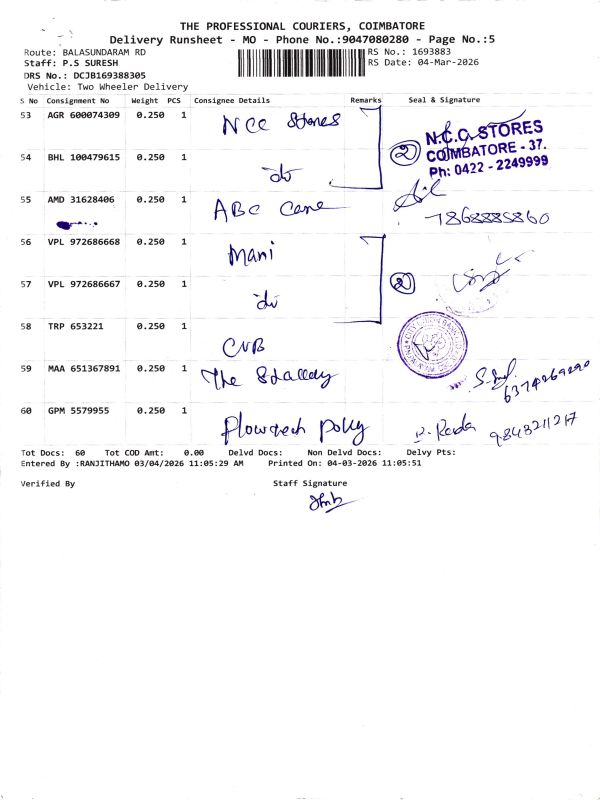 THE PROFESSIONAL COURIERS, COIMBATORE
Delivery Runsheet - MO - Phone No.:9047080280 - Page No.:5
Route: BALASUNDARAM RD
RS No.: 1693883
Staff: P.S SURESH
RS Date: 04-Mar-2026
DRS No.: DCJB169388305
Vehicle: Two Wheeler Delivery
S No Consignment No Weight PCS Consignee Details Remarks Seal & Signature
53 AGR 600074309 0.250 1 NCC Stores
N.C.C. STORES
COIMBATORE - 37.
Ph: 0422 - 2249999
2
54 BHL 100479615 0.250 1 do
55 AMD 31628406 0.250 1 ABC Cane
7868885860
56 VPL 972686668 0.250 1 Mani
57 VPL 972686667 0.250 1 do
2
58 TRP 653221 0.250 1 CUB
59 MAA 651367891 0.250 1 The
60 GPM 5579955 0.250 1 Flowtech Polly
9843211217
Tot Docs: 60 Tot COD Amt: 0.00 Delvd Docs: Non Delvd Docs: Delvy Pts:
Entered By :RANJITHAMO 03/04/2026 11:05:29 AM Printed On: 04-03-2026 11:05:51
Verified By Staff Signature